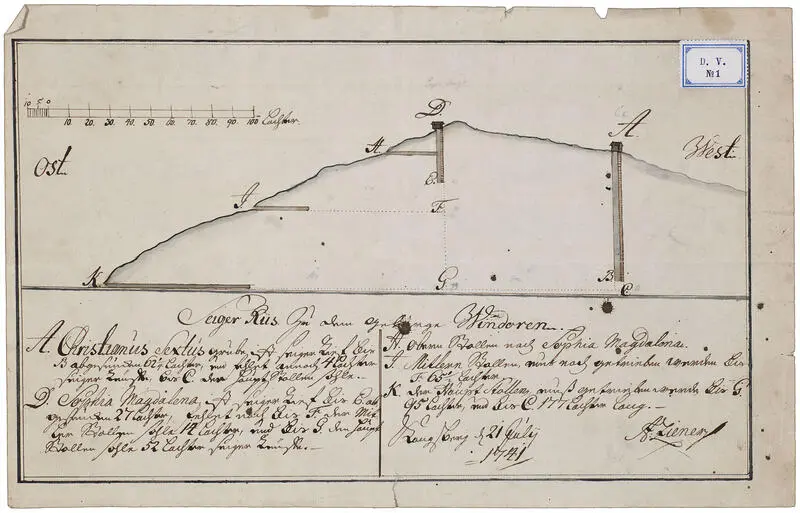 D. V.
№ 1
10 5 0
10. 20. 30. 40. 50. 60. 70. 80. 90. 100 Lachter.
D.
A.
H
Ost.
West.
E.
J.
F.
K
G
B
C.
Seiger Riss. Zu dem gebürge Windoren.
A. Christianus Sextus grube, ist seiger tief bis
B abgesuncken Lachter, und fehlet annoch Lachter
seiger bis C. der Haupt Stollen sohle.
D. Sophia Magdalena, ist seiger tief bis E. ab
gesuncken 27 Lachter, fehlet noch bis F. der Mit
ler Stollen sohle 14 Lachter, und bis G. den Haupt
Stollen sohle 52 Lachter seiger
H. obern Stollen nach Sophia Magdalena.
J. Mitlern Stollen, mus noch getrieben werden bis
F. 65 Lachter
K. der Haupt Stollen, muß getrieben werden bis G.
95 Lachter, und bis C. 177 Lachter lang.
Kongsberg d. 21 July
1741
A. Ziener